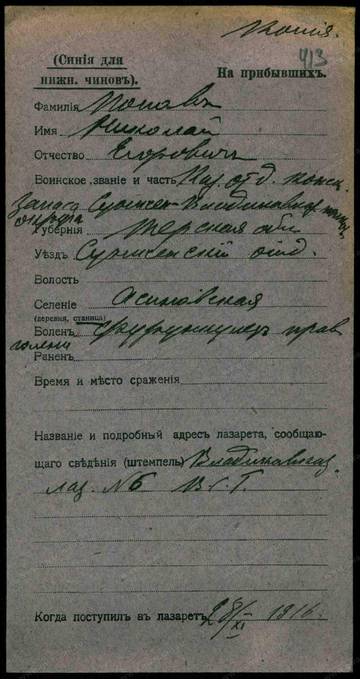 Копія.
413
(Синія для
нижн. чиновъ).
На прибывшихъ.
Фамилія Поповъ
Имя Николай
Отчество Егоровичъ
Воинское званіе и часть Каз. отд. конец.
Запаса Сунжен-Владикавказ.
округа
Губернія Терская обл.
Уѣздъ Сунженскій отд.
Волость
Селеніе Асиновская
(деревня, станица)
Боленъ Фурункулезъ прав.
голени
Раненъ
Время и мѣсто сраженія
Названіе и подробный адресъ лазарета, сообщаю-
щаго свѣдѣнія (штемпель) Владикавказ.
лаз. №6 В. Г. Г.
Когда поступилъ въ лазаретъ 28/XI 1916.